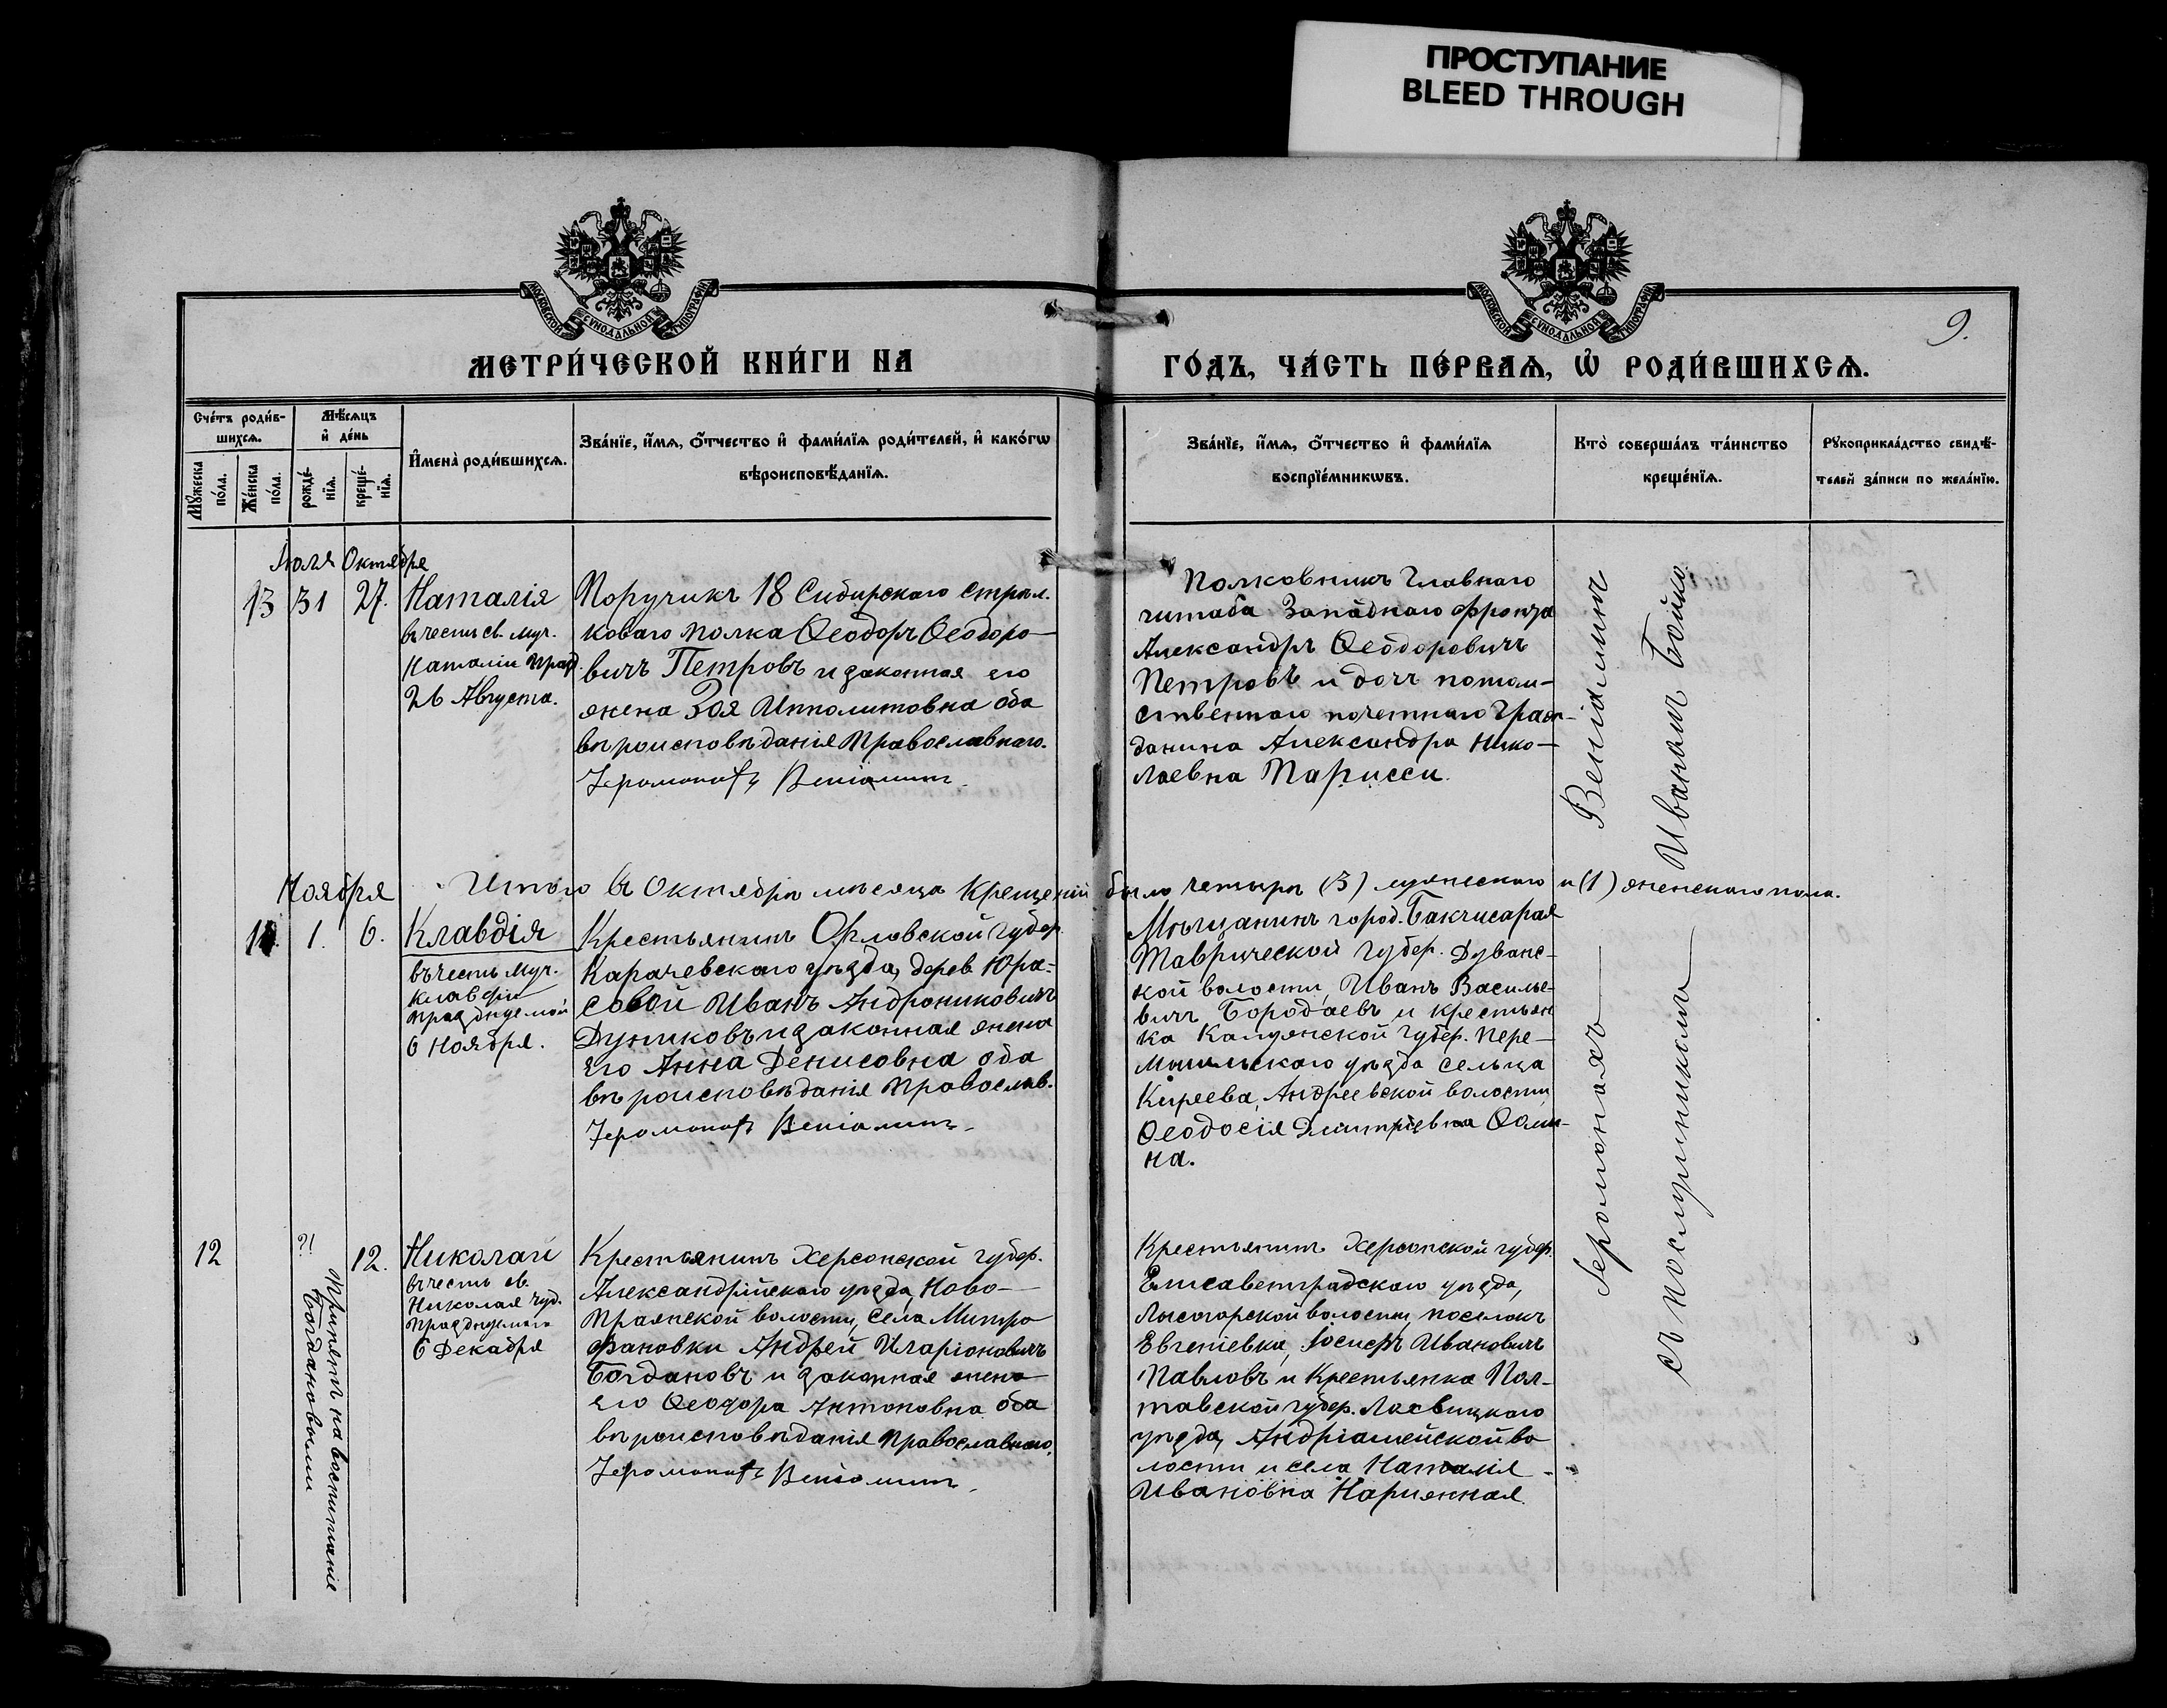 ПРОСТУПАНИЕ
BLEED THROUGH
МОСКОВСКОЙ СУНОДАЛЬНОЙ ТИПОГРАФІИ
МОСКОВСКОЙ СУНОДАЛЬНОЙ ТИПОГРАФІИ
9.
МЕТРИ́ЧЕСКОЙ КНИ́ГИ НА
ГО́ДЪ, ЧА́СТЬ ПЕ́РВАѦ, Ѡ҆ РОДИ́ВШИХСѦ.
Сче́тъ роди́в-
шихсѧ.
Мѣ́сѧцъ
и҆ де́нь
Мꙋ́жеска
по́ла.
Же́нска
по́ла.
рожде́-
нїѧ.
креще́-
нїѧ.
И҆мена̀ роди́вшихсѧ.
Зва́нїе, и҆́мѧ, ѻ҆́тчество и҆ фами́лїѧ роди́телей, и҆ како́гѡ
вѣроисповѣ́данїѧ.
Зва́нїе, и҆́мѧ, ѻ҆́тчество и҆ фами́лїѧ
воспрїе́мникѡвъ.
Кто̀ соверша́лъ та́инство
креще́нїѧ.
Рꙋкоприкла́дство свидѣ́-
телей за́писи по жела́нїю.
Іюля Октября
13 31 27. Наталія
въ честь св. муч.
Наталіи празд.
26 Августа.
Поручикъ 18 Сибирскаго стрѣл.
коваго полка Ѳеодоръ Ѳеодоро-
вичъ Петровъ и законная его
жена Зоя Ипполитовна оба
вѣроисповѣданія Православнаго.
Іеромонахъ Веніаминъ
Полковникъ Главнаго
штаба Западнаго фронта
Александръ Ѳеодоровичъ
Петровъ и дочь потом-
ственнаго почетнаго граж-
данина Александра Нико-
лаевна Парисси.
Итого въ Октябрѣ мѣсяцѣ крещеній было четыре (3) мужескаго и (1) женскаго пола.
Ноября
1. 6. Клавдія
въ честь муч.
Клавдіи
празднуемой
6 Ноября.
Крестьянинъ Орловской губер.
Карачевскаго уѣзда, дерев. Юра-
совой Иванъ Андрониковичъ
Дуниковъ и законная жена
его Анна Денисовна оба
вѣроисповѣданія Православ.
Іеромонахъ Веніаминъ
Мѣщанинъ город. Бакчисарая
Таврической губер. Дуванс-
кой волости, Иванъ Василье-
вичъ Бородаевъ и крестьян
ка Калужской губер. Пере-
мышльскаго уѣзда сельца
Киреева, Андреевской волости
Ѳеодосія Димитріевна Ѳоми-
на.
12 ?! 12. Николай
въ честь св.
Николая чуд.
празднуемаго
6 Декабря
Принятъ на воспитаніе
Богдановыми
Крестьянинъ Херсонской губер.
Александрійскаго уѣзда, Ново-
Пражской волости, села Митро
фановки Андрей Иларіоновичъ
Богдановъ и законная жена
его Ѳеодора Антоновна оба
вѣроисповѣданія Православнаго.
Іеромонахъ Веніаминъ
Крестьянинъ Херсонской губер.
Елисаветградскаго уѣзда,
Лысогорской волости, поселокъ
Евгеніевка, Іосифъ Ивановичъ
Павловъ и Крестьянка Пол-
тавской губер. Лохвицкаго
уѣзда, Андріашейской во
лости и села Наталія
Ивановна Нарижная.
Іеромонахъ Веніаминъ
съ послушникомъ Иваномъ Бойко